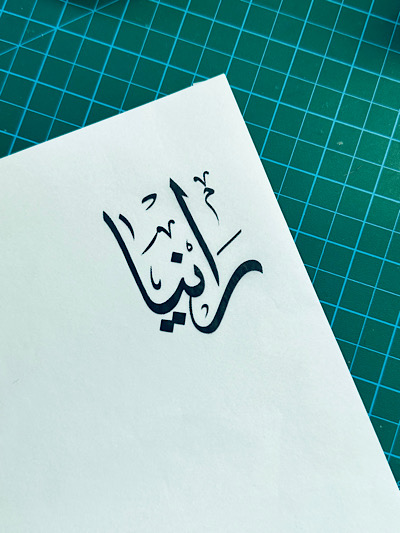 رانيا